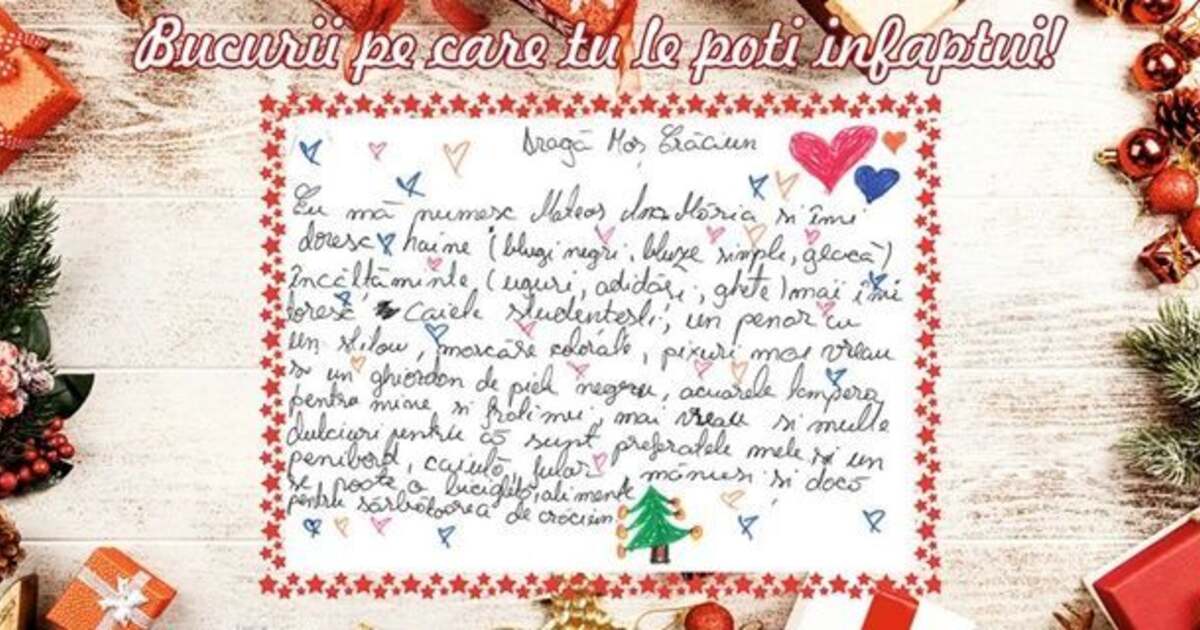 Bucurii pe care tu le poti infaptui!
Dragă Moș Crăciun
Eu mă numesc Mateos Ana Maria și îmi
doresc haine (blugi negri, bluze simple, geacă)
încălțăminte, (uguri, adidași, ghete) mai îmi
doresc caiete studentești, un penar cu
un stilou, morcăre colorate, pixuri mai vreau
și un ghiozdan de piele negru, acuarele tempera,
pentru mine si frații mei, mai vreau si multe
dulciuri pentru că sunt preferatele mele si un
penibord, caciulă, fular mănusi si dacă
se poate o bicicletă, alimente
pentru sărbătoarea de crăciun